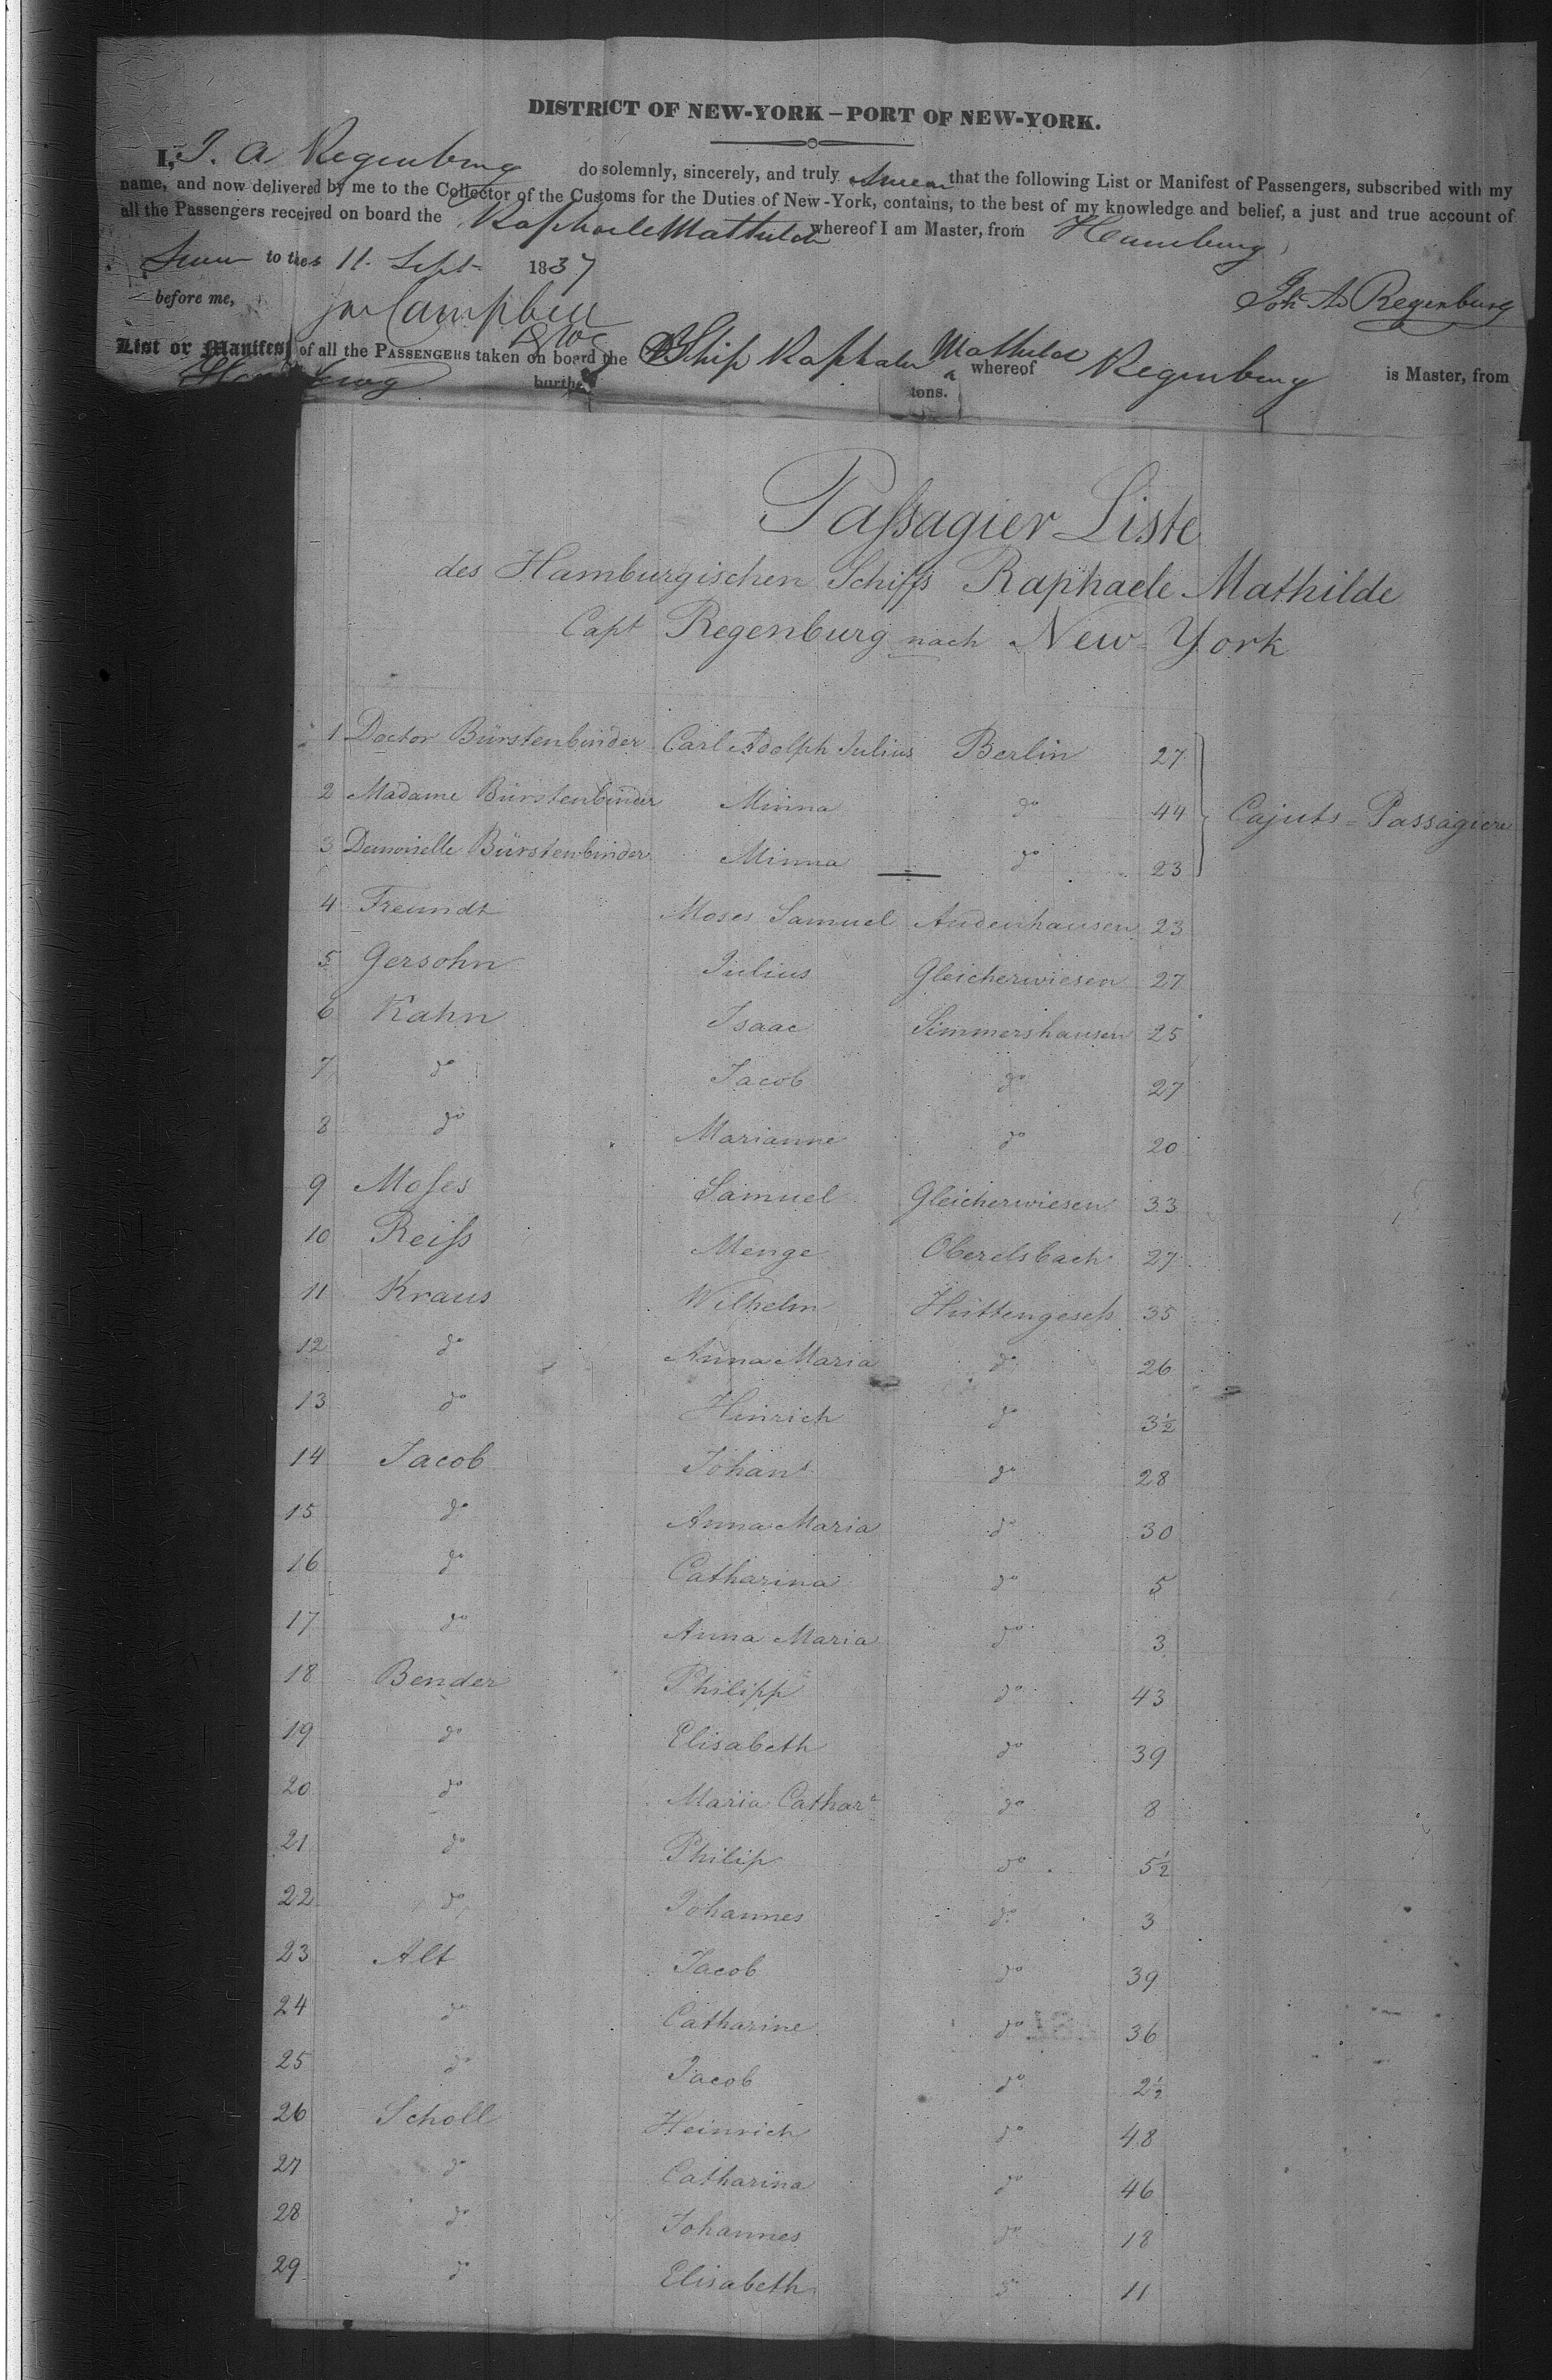 DISTRICT OF NEW-YORK – PORT OF NEW-YORK.
I, J. A Regenburg do solemnly, sincerely, and truly swear that the following List or Manifest of Passengers, subscribed with my
name, and now delivered by me to the Collector of the Customs for the Duties of New-York, contains, to the best of my knowledge and belief, a just and true account of
all the Passengers received on board the Raphaele Mathilde whereof I am Master, from Hamburg
Sworn to this 11. Sept 1837
before me, Joh. A. Regenburg
Campbell
List or Manifest of all the PASSENGERS taken on board the Ship Raphaele Mathilde whereof Regenburg is Master, from
Hamburg burthen tons.
Paſsagier Liste
des Hamburgischen Schiffs Raphaele Mathilde
Capt Regenburg nach New-York
1 Doctor Bürstenbinder Carl Adolph Julius Berlin 27
2 Madame Bürstenbinder Minna do 44 Cajuts-Passagiere
3 Demoiselle Bürstenbinder Minna do 23
4 Freundt Moses Samuel Audenhausen 23
5 Gersohn Julius Gleicherwiesen 27
6 Kahn Isaac Simmershausen 25
7 do Jacob do 27
8 do Marianne do 20
9 Moſes Samuel Gleicherwiesen 33
10 Reiſs Menge Oberelsbach 27
11 Kraus Wilhelm Hüttengeseſs 35
12 do Anna Maria do 26
13 do Hinrich do 3½
14 Jacob Johans do 28
15 do Anna Maria do 30
16 do Catharina do 5
17 do Anna Maria do 3
18 Bender Philipp do 43
19 do Elisabeth do 39
20 do Maria Cathara do 8
21 do Philip do 5½
22 do Johannes do 3
23 Alt Jacob do 39
24 do Catharine do 36
25 do Jacob do 2½
26 Scholl Heinrich do 48
27 do Catharina do 46
28 do Johannes do 18
29 do Elisabeth do 11